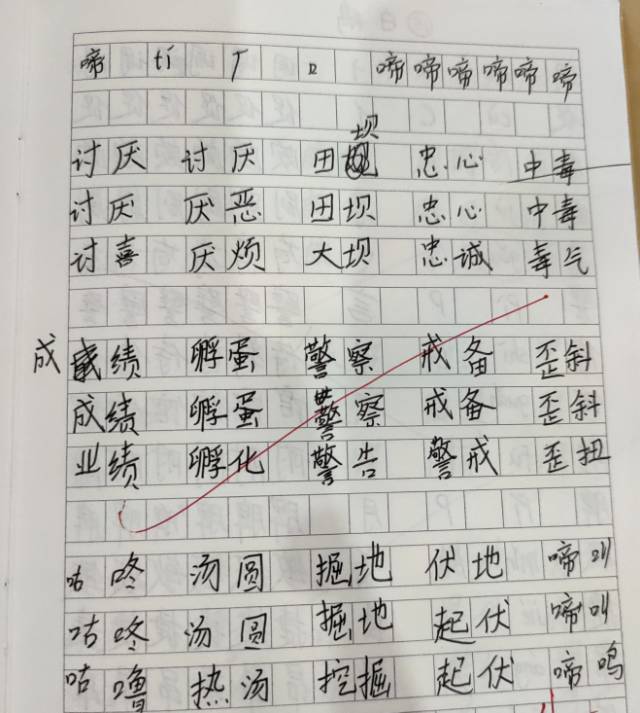 啼 tí 丁 口 啼 啼 啼 啼 啼 啼
坝
讨厌 讨厌 田坝 忠心 中毒
讨厌 厌恶 田坝 忠心 中毒
讨喜 厌烦 大坝 忠诚 毒气
成 成绩 孵蛋 警察 戒备 歪斜
成绩 孵蛋 警察 戒备 歪斜
业绩 孵化 警告 警戒 歪扭
咕咚 汤圆 掘地 伏地 啼叫
咕咚 汤圆 掘地 起伏 啼叫
咕噜 热汤 挖掘 起伏 啼鸣